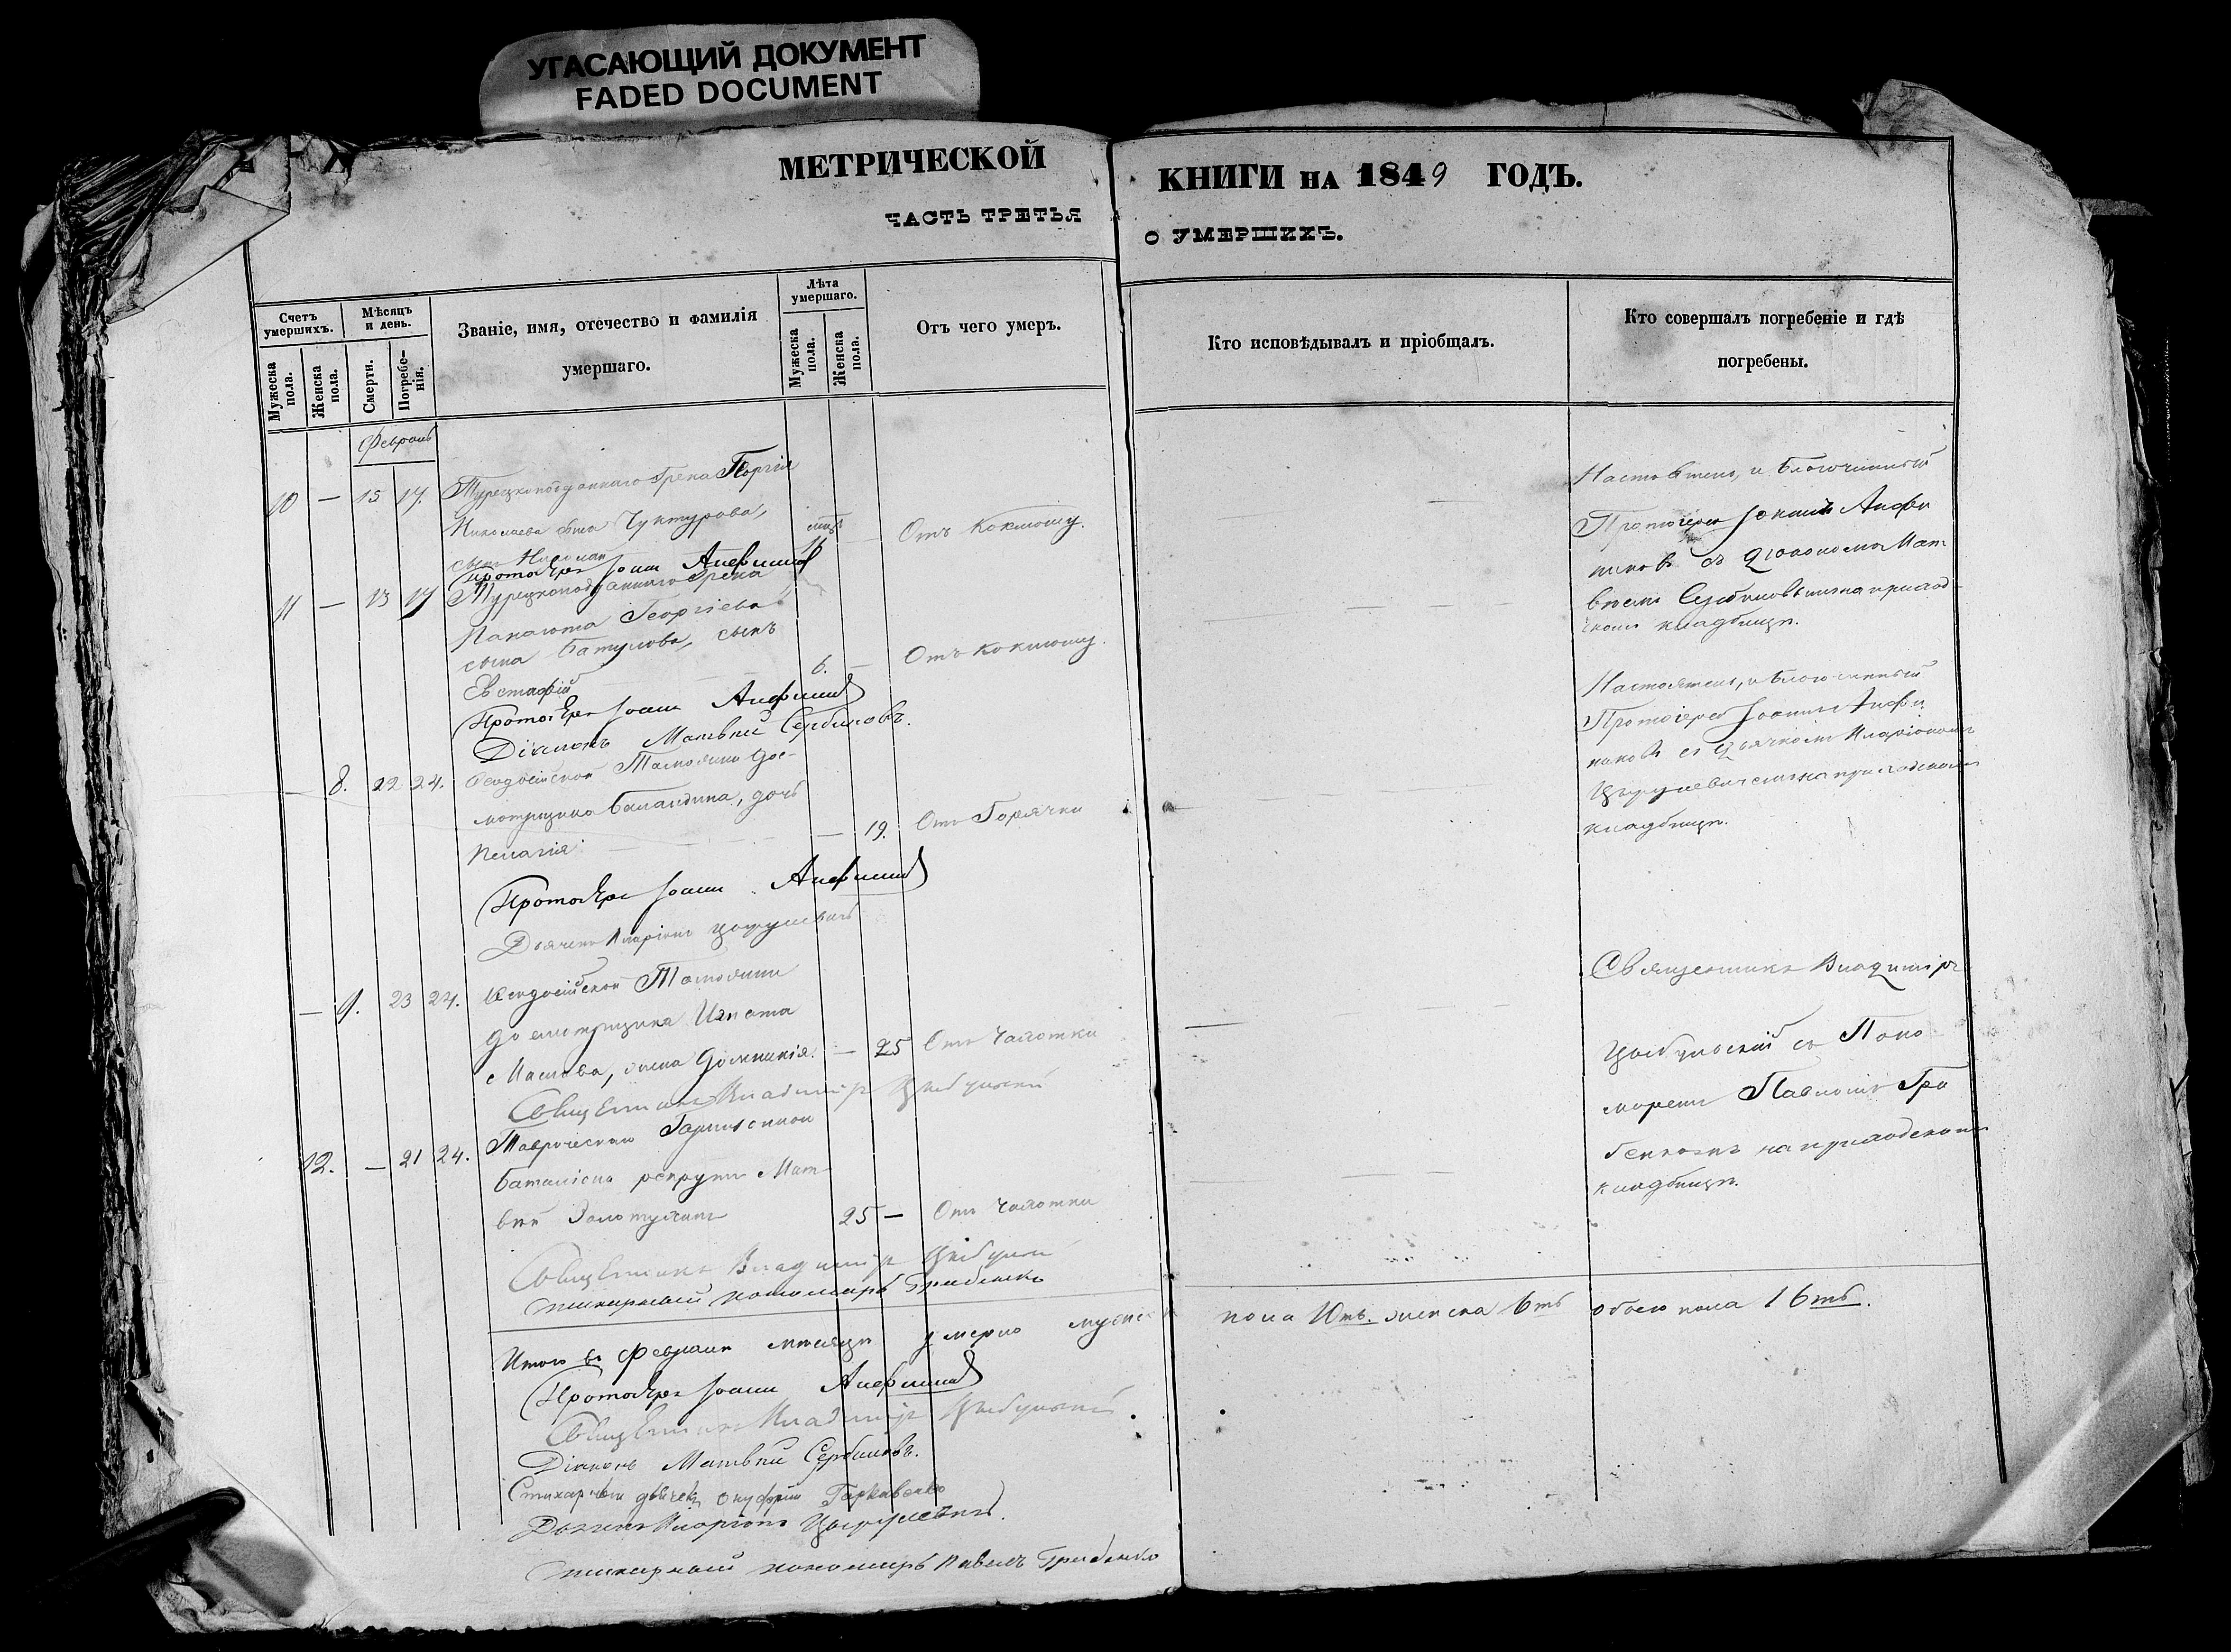 УГАСАЮЩИЙ ДОКУМЕНТ
FADED DOCUMENT
МЕТРИЧЕСКОЙ
ЧАСТЬ ТРЕТЬЯ
Счетъ умершихъ.
Мужеска пола.
Женска пола.
Мѣсяцъ и день.
Смерти.
Погребе-
нія.
Званіе, имя, отечество и фамилія
умершаго.
Лѣта умершаго.
Мужеска пола.
Женска пола.
Отъ чего умеръ.
Февраль
10 — 15 17. Турецкоподданнаго Грека Георгія
Николаева сына Чуктурова,
сынъ Николай
Отъ Коклюшу.
Протоіерей Іоаннъ
11 — 13 17 Турецкоподданнаго Грека
Панаіота Георгіева
сына Батулова, сынъ
Евстафій 6. — Отъ коклюшу.
Протоіерей Іоаннъ
Діаконъ Матвѣй Сербиновъ.
— 8. 22 24. Феодосійской Таможни дос-
мотрщика Баландина, дочь
Пелагія — 19. Отъ Горячки
Протоіерей Іоаннъ
Дьячекъ Иларіонъ
— 9. 23 24. Феодосійской Таможни
досмотрщика Игната
Маслова, жена Домникія. — 25 Отъ Чахотки
Священникъ Владиміръ Цыбульскій
12. — 21 24. Таврическаго Гарнизоннаго
баталіона рекрутъ Мат-
вѣй Золотухинъ 25 — Отъ Чахотки
Священникъ Владиміръ
стихарный пономарь Грибенко
Итого въ Февралѣ мѣсяцѣ умерло мужеска
Протоіерей Іоаннъ
Священникъ Владиміръ Цыбульскій
Діаконъ Матвѣй Сербиновъ.
Стихарный дьячекъ Онуфрій
Дьячекъ Иларіонъ
стихарный пономарь Павелъ Грибенко
КНИГИ НА 1849 ГОДЪ.
О УМЕРШИХЪ.
Кто исповѣдывалъ и пріобщалъ.
Кто совершалъ погребеніе и гдѣ
погребены.
Настоятель, и благочинный
Протоіерей Іоаннъ
съ Діакономъ Мат-
вѣемъ Сербиновымъ на приход-
скомъ кладбищѣ.
Настоятель, и благочинный
Протоіерей Іоаннъ
съ дьячкомъ Иларіономъ
на приходскомъ
кладбищѣ.
Священникъ Владиміръ
Цыбульскій съ Поно-
маремъ Павломъ Гри-
бенкомъ на приходскомъ
кладбищѣ.
пола 10ть. женска 6ть обоего пола 16ть.